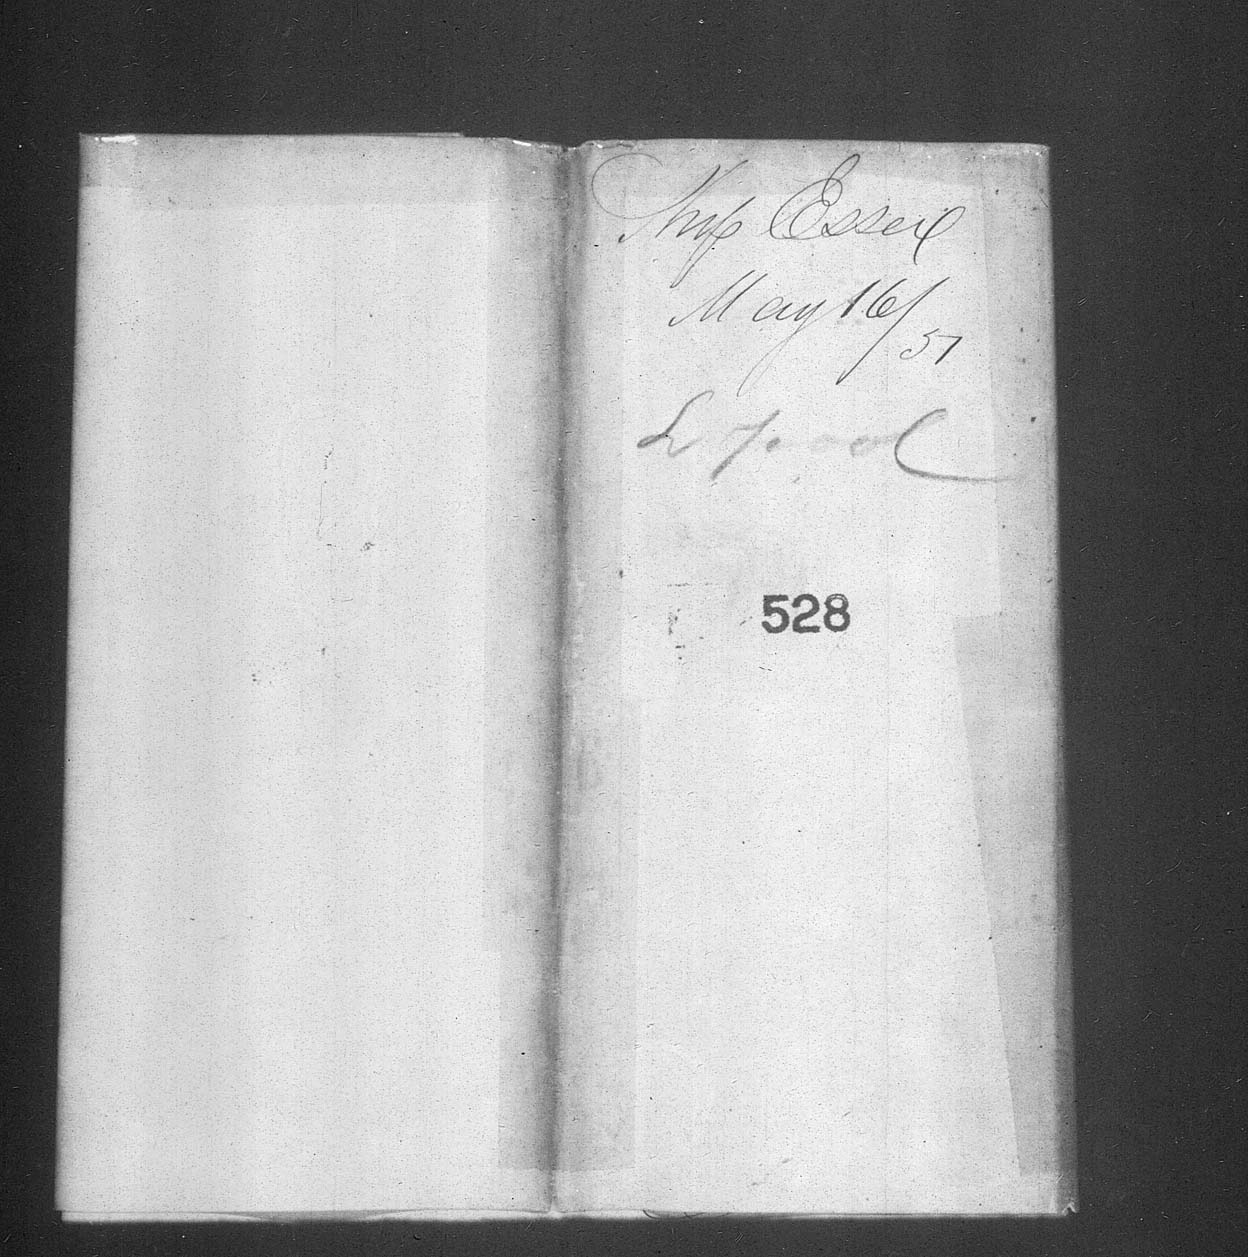 Ship Essex
May 16/51
L pool
528